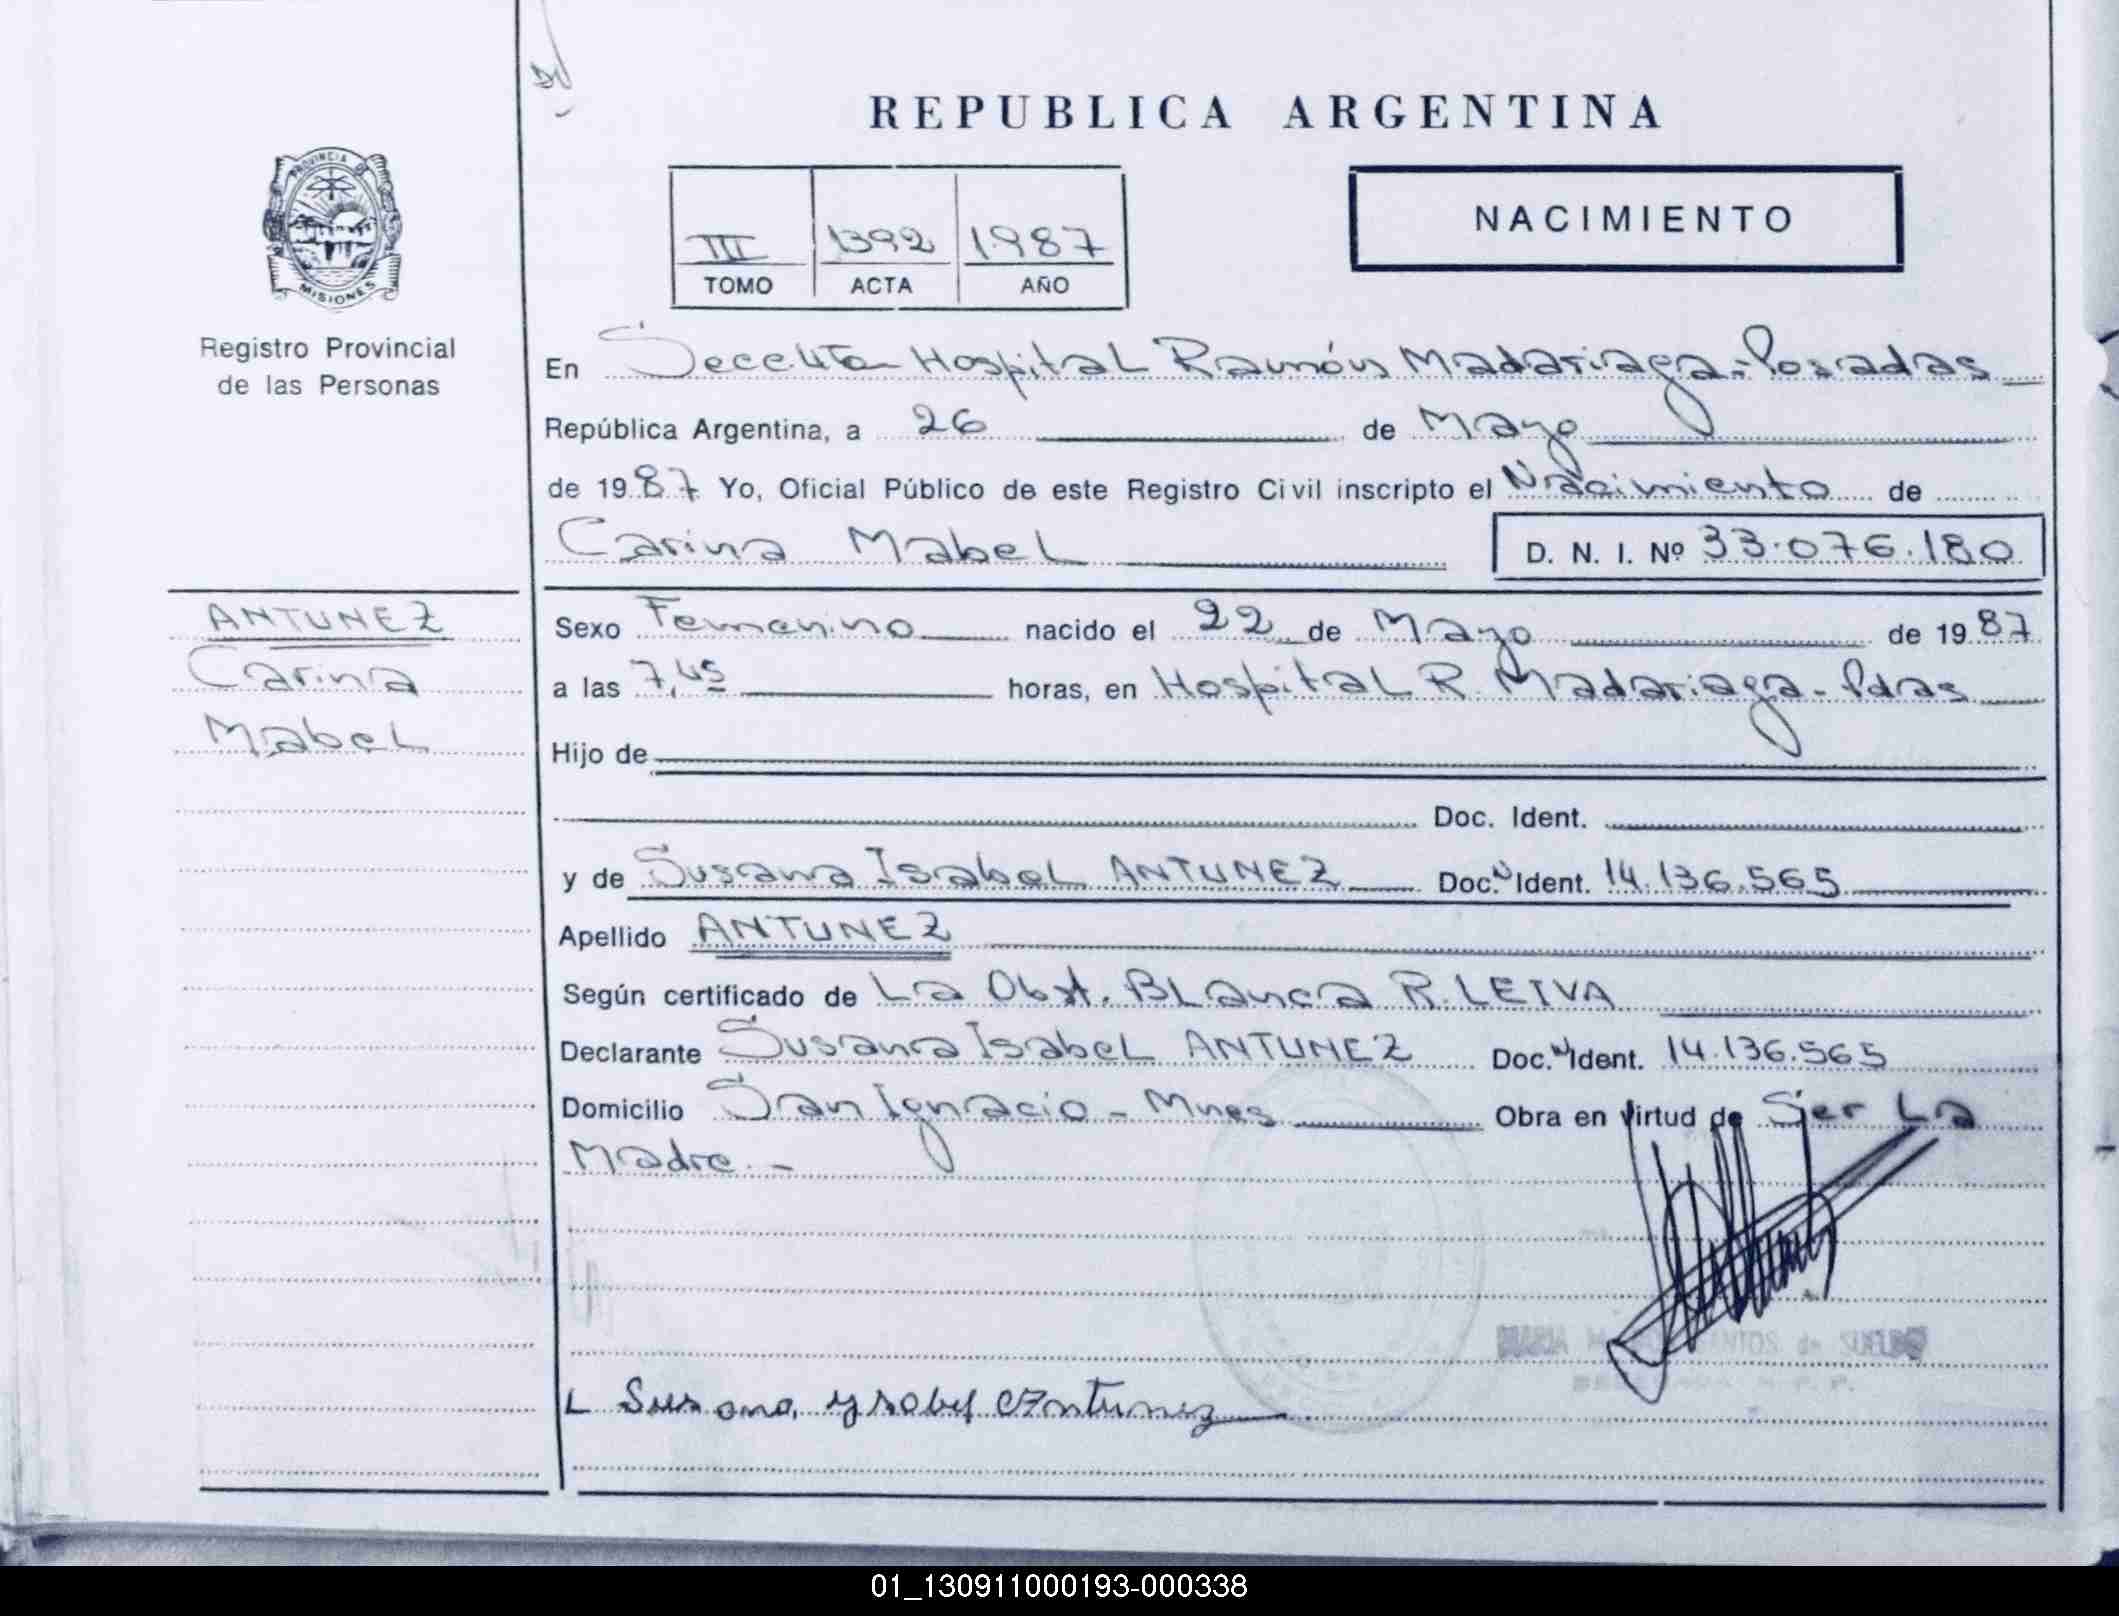 REPUBLICA ARGENTINA
PROVINCIA DE
MISIONES
Registro Provincial
de las Personas
III 1392 1987
TOMO ACTA AÑO
NACIMIENTO
En Hospital Ramón Madariaga - Posadas
República Argentina, a 26 de Mayo
de 1987 Yo, Oficial Público de este Registro Civil inscripto el Nacimiento de
Carina Mabel D. N. I. Nº 33.076.180
ANTUNEZ
Carina
Mabel
Sexo Femenino nacido el 22 de Mayo de 1987
a las 7,45 horas, en Hospital R. Madariaga - Pdas
Hijo de
Doc. Ident.
y de Susana Isabel ANTUNEZ Doc. Ident. 14.136.565
Apellido ANTUNEZ
Según certificado de La Obst. Blanca R. LEIVA
Declarante Susana Isabel ANTUNEZ Doc. Ident. 14.136.565
Domicilio San Ignacio - Mnes Obra en virtud de Ser La
Madre. -
MARIA SANTOS de SUELDO
Susana ysabel Antunez
01_130911000193-000338